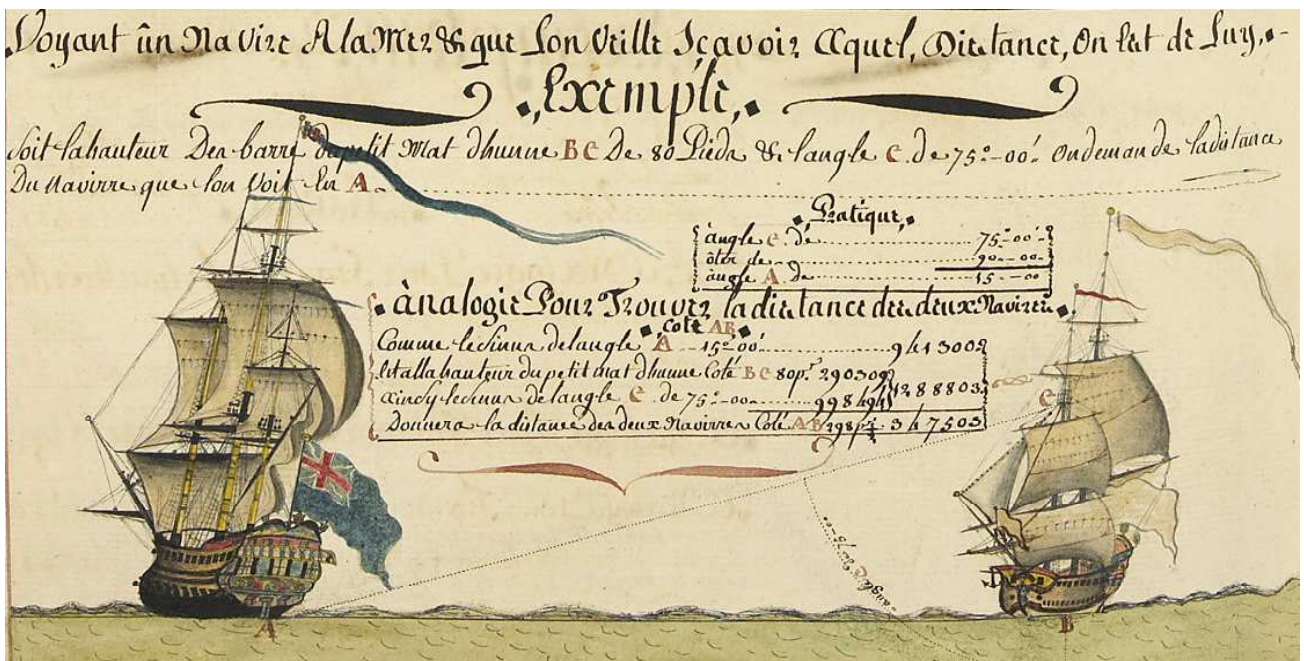 Voyant ûn Navire A la Mer & que Lon Veille Sçavoir Aquel, Distance, On Est de Luy,.
Exemple,
Soit la hauteur Des barre du petit Mat dhunne BC De 80 Pieds & langle C. de 75°-00'. On demande la distance
Du Navirre que lon Voit En A.
Pratique,
àngle C. de 75°-00'
ôter de 90-00-
àngle A. de 15-00
ànalogie Pour Trouver la distance des deux Navires
coté AB
Comme le Sinus de langle A 15°00' 9413002
Est alla hauteur du petit mat dhunne Coté BC 80 pds 290309
Ainsy le sinus de langle C. de 75°-00 998494 1288803
Donnera la distance des deux Navirres Coté AB 298 pds 347503
C
angle C de 75-00
A
B